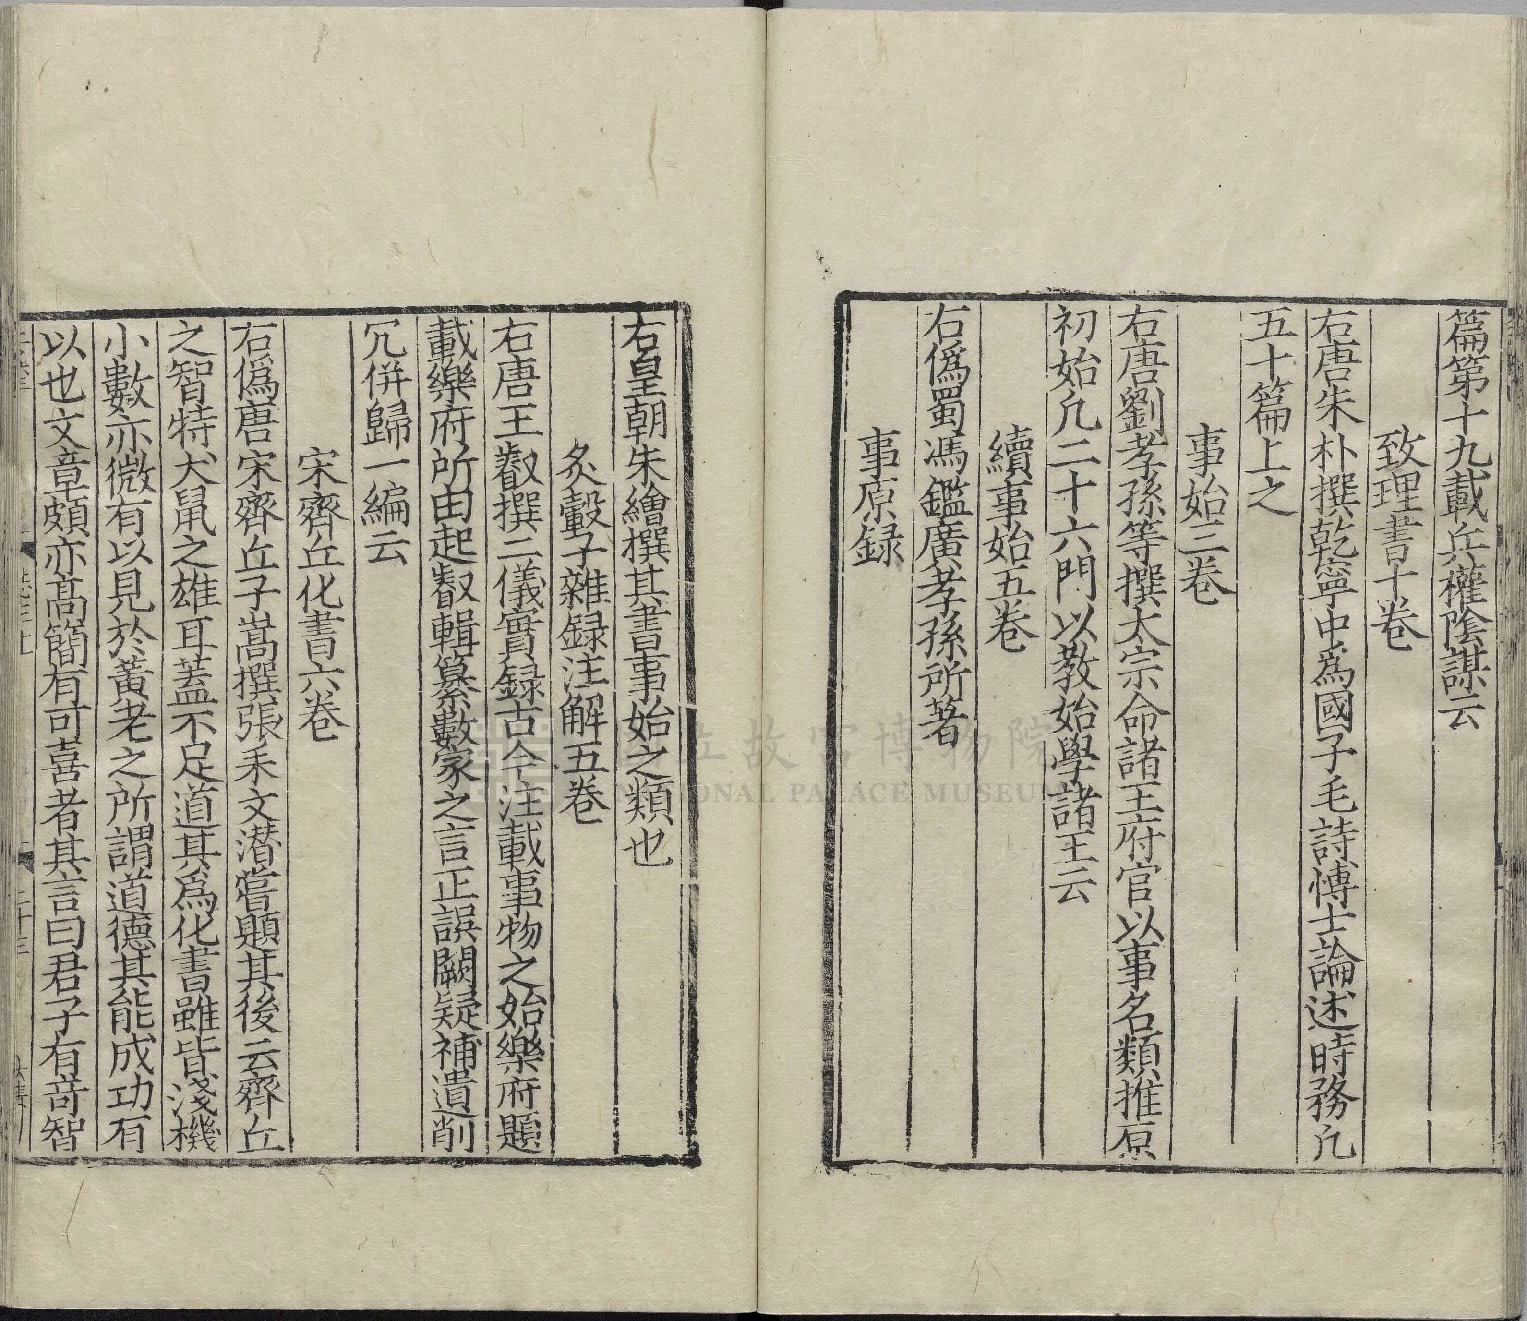 篇第十九載兵權隂謀云
致理書十卷
右唐朱朴撰乾寧中爲國子毛詩博士論述時務凡
五十篇上之
事始三卷
右唐劉孝孫等撰太宗命諸王府官以事名類推原
初始凡二十六門以教始學諸王云
續事始五卷
右僞蜀馮鑑廣孝孫所著
事原録
右皇朝朱繪撰其書事始之類也
炙轂子雜録注解五卷
右唐王叡撰二儀實録古今注載事物之始樂府題
載樂府所由起叡輯纂數家之言正誤闕疑補遺削
冗併歸一編云
宋齊丘化書六卷
右僞唐宋齊丘子嵩撰張耒文潛嘗題其後云齊丘
之智特犬鼠之雄耳蓋不足道其爲化書雖皆淺機
小數亦微有以見於黃老之所謂道德其能成功有
以也文章頗亦髙簡有可喜者其言曰君子有竒智
國立故宮博物院
NATIONAL PALACE MUSEUM